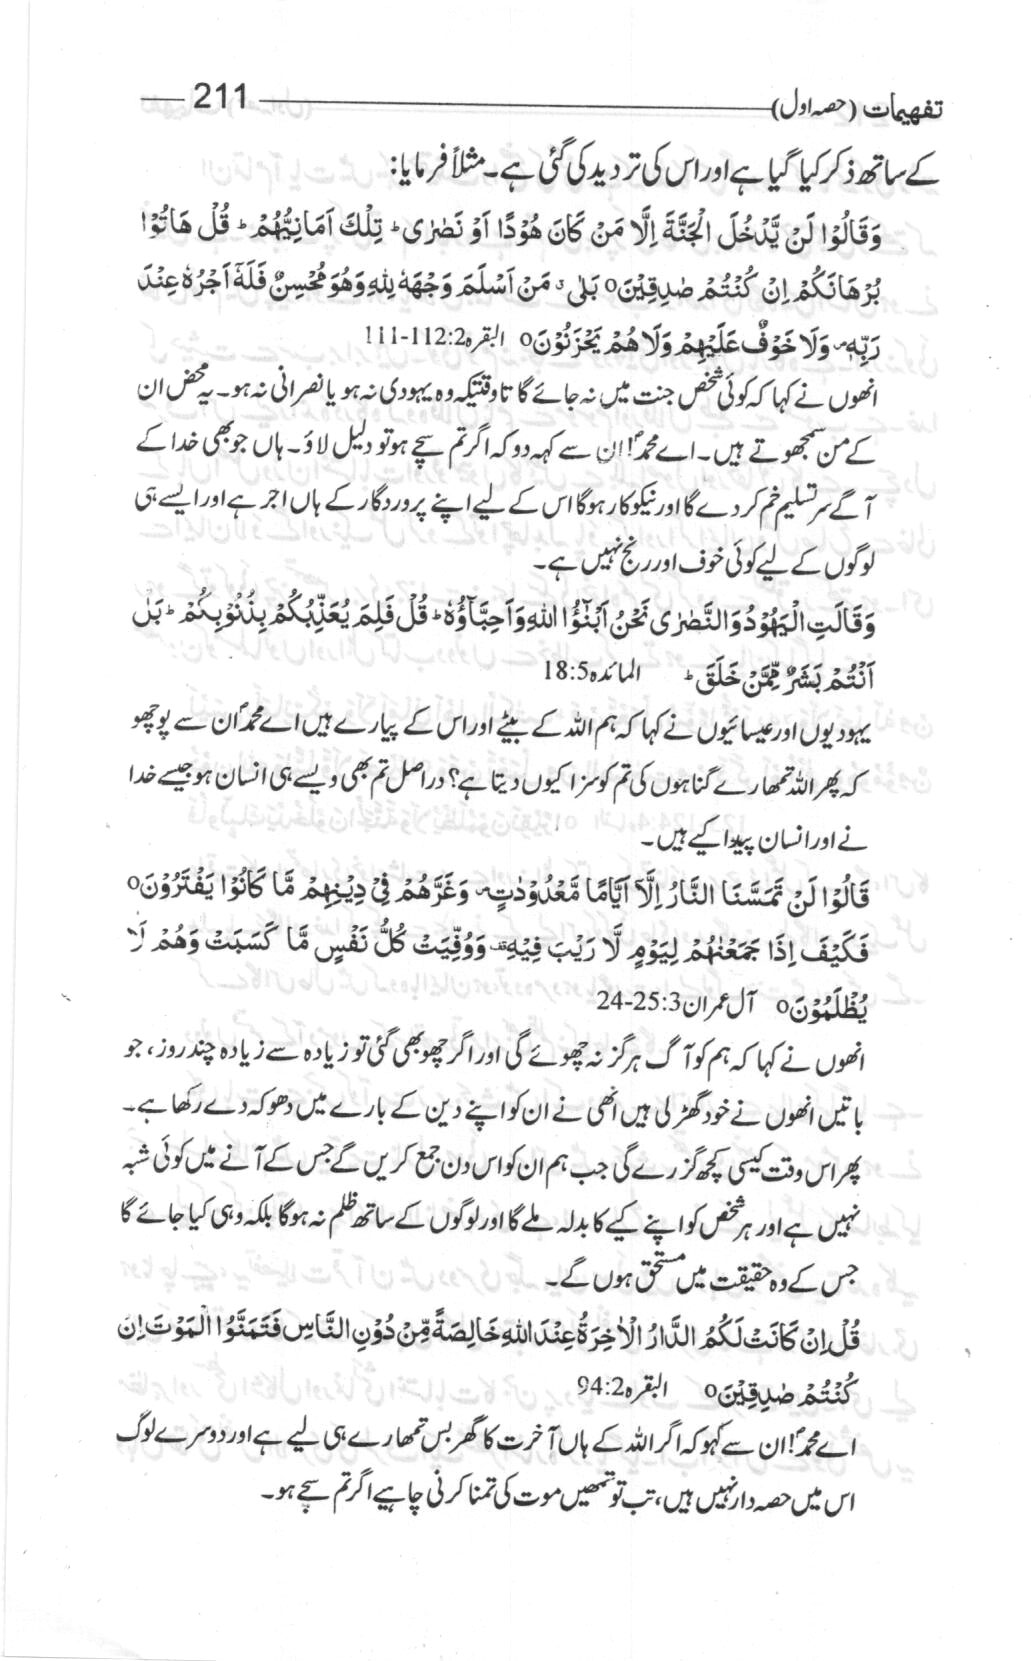 تفہیمات (حصہ اول) 211
کے ساتھ ذکر کیا گیا ہے اور اس کی تردید کی گئی ہے۔ مثلاً فرمایا:
وَقَالُوْا لَنْ يَّدْخُلَ الْجَنَّةَ اِلَّا مَنْ كَانَ هُوْدًا اَوْ نَصٰرٰى ؕ تِلْكَ اَمَانِيُّهُمْ ؕ قُلْ هَاتُوْا
بُرْهَانَكُمْ اِنْ كُنْتُمْ صٰدِقِيْنَ o بَلٰى ۤ مَنْ اَسْلَمَ وَجْهَهٗ لِلّٰهِ وَهُوَ مُحْسِنٌ فَلَهٗٓ اَجْرُهٗ عِنْدَ
رَبِّهٖ ۪ وَلَا خَوْفٌ عَلَيْهِمْ وَلَا هُمْ يَحْزَنُوْنَ o البقرہ 2:112-111
انھوں نے کہا کہ کوئی شخص جنت میں نہ جائے گا تاوقتیکہ وہ یہودی نہ ہو یا نصرانی نہ ہو۔ یہ محض ان
کے من سمجھوتے ہیں۔ اے محمدؐ! ان سے کہہ دو کہ اگر تم سچے ہو تو دلیل لاؤ۔ ہاں جو بھی خدا کے
آگے سر تسلیم خم کر دے گا اور نیکوکار ہوگا اس کے لیے اپنے پروردگار کے ہاں اجر ہے اور ایسے ہی
لوگوں کے لیے کوئی خوف اور رنج نہیں ہے۔
وَقَالَتِ الْيَهُوْدُ وَالنَّصٰرٰى نَحْنُ اَبْنٰٓؤُا اللّٰهِ وَاَحِبَّآؤُهٗ ؕ قُلْ فَلِمَ يُعَذِّبُكُمْ بِذُنُوْبِكُمْ ؕ بَلْ
اَنْتُمْ بَشَرٌ مِّمَّنْ خَلَقَ ؕ المائدہ 18:5
یہودیوں اور عیسائیوں نے کہا کہ ہم اللہ کے بیٹے اور اس کے پیارے ہیں اے محمدؐ ان سے پوچھو
کہ پھر اللہ تمھارے گناہوں کی تم کو سزا کیوں دیتا ہے؟ دراصل تم بھی ویسے ہی انسان ہو جیسے خدا
نے اور انسان پیدا کیے ہیں۔
قَالُوْا لَنْ تَمَسَّنَا النَّارُ اِلَّآ اَيَّامًا مَّعْدُوْدٰتٍ ۪ وَغَرَّهُمْ فِيْ دِيْنِهِمْ مَّا كَانُوْا يَفْتَرُوْنَ o
فَكَيْفَ اِذَا جَمَعْنٰهُمْ لِيَوْمٍ لَّا رَيْبَ فِيْهِ ۫ وَوُفِّيَتْ كُلُّ نَفْسٍ مَّا كَسَبَتْ وَهُمْ لَا
يُظْلَمُوْنَ o آل عمران 3:25-24
انھوں نے کہا کہ ہم کو آگ ہرگز نہ چھوئے گی اور اگر چھو بھی گئی تو زیادہ سے زیادہ چند روز، جو
باتیں انھوں نے خود گھڑ لی ہیں انھی نے ان کو اپنے دین کے بارے میں دھوکہ دے رکھا ہے۔
پھر اس وقت کیسی کچھ گزرے گی جب ہم ان کو اس دن جمع کریں گے جس کے آنے میں کوئی شبہ
نہیں ہے اور ہر شخص کو اپنے کیے کا بدلہ ملے گا اور لوگوں کے ساتھ ظلم نہ ہوگا بلکہ وہی کیا جائے گا
جس کے وہ حقیقت میں مستحق ہوں گے۔
قُلْ اِنْ كَانَتْ لَكُمُ الدَّارُ الْاٰخِرَةُ عِنْدَ اللّٰهِ خَالِصَةً مِّنْ دُوْنِ النَّاسِ فَتَمَنَّوُا الْمَوْتَ اِنْ
كُنْتُمْ صٰدِقِيْنَ o البقرہ 94:2
اے محمدؐ! ان سے کہو کہ اگر اللہ کے ہاں آخرت کا گھر بس تمھارے ہی لیے ہے اور دوسرے لوگ
اس میں حصہ دار نہیں ہیں، تب تو تمھیں موت کی تمنا کرنی چاہیے اگر تم سچے ہو۔